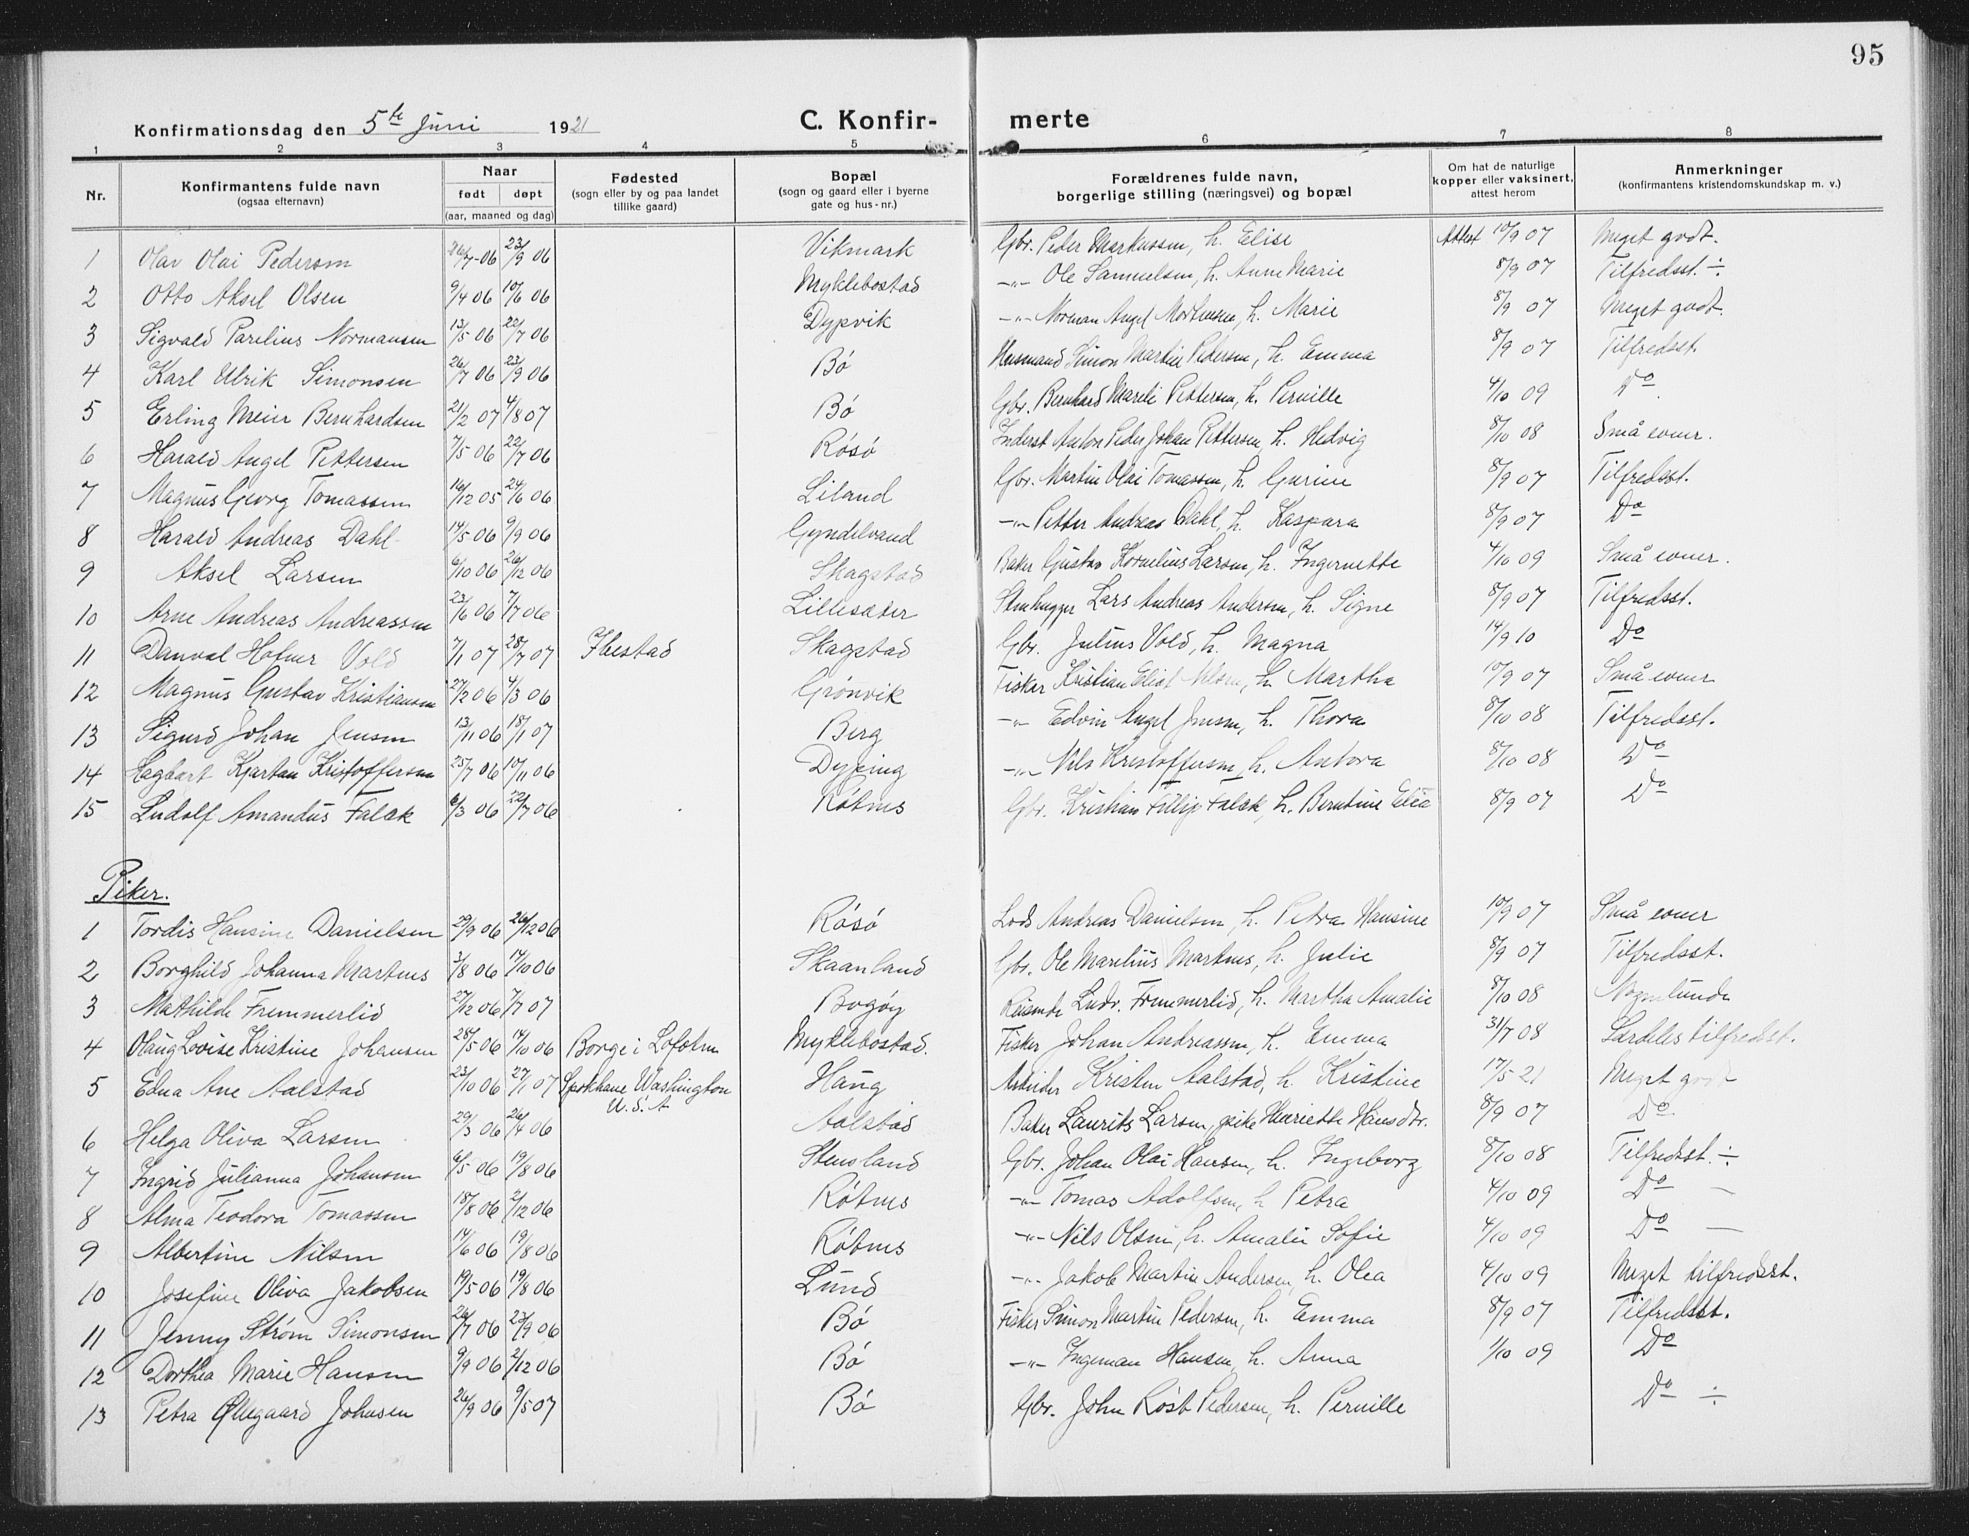 95
Konfirmationsdag den 5te Juni 1921 C. Konfirmerte
1 2 3 4 5 6 7 8
Nr. Konfirmantens fulde navn (ogsaa efternavn) Naar født døpt (aar, maaned og dag) Fødested (sogn eller by og paa landet tillike gaard) Bopæl (sogn og gaard eller i byerne gate og hus-nr.) Forældrenes fulde navn, borgerlige stilling (næringsvei) og bopæl Om hat de naturlige kopper eller vaksinert, attest herom Anmerkninger (konfirmantens kristendomskundskap m. v.)
1 Olav Olai Pedersen 26/7-06 23/9 06 Vikmark Gbr. Peder Markussen, h. Elise Attest 10/9 07 Meget godt.
2 Otto Aksel Olsen 9/4 06 10/6 06 Myklebostad -"- Ole Samuelsen, h. Anne Marie 8/9 07 Tilfredsst. ÷
3 Sigvald Parelius Normansen 13/5 06 22/7 06 Dypvik -"- Norman Angel Mortensen, h. Marie 8/9 07 Meget godt.
4 Karl Ulrik Simonsen 26/7 06 23/9 06 Bø Husmand Simon Martin Pedersen, h. Emma 8/9 07 Tilfredsst.
5 Erling Meier Bernhardsen 21/2 07 4/8 07 Bø Gbr. Bernhard Pettersen, h. Pernille 4/10 09 Do
6 Harald Angel Pettersen 7/5 06 22/7 06 Røsø Inderst Anton Peder Johan Pettersen, h. Hedvig 8/10 08 Små evner.
7 Magnus Georg Tomassen 16/12 05 24/6 06 Liland Gbr. Martin Olai Tomassen, h. Gurine 8/9 07 Tilfredsst.
8 Harald Andreas Dahl 14/5 06 9/9 06 -"- Petter Andreas Dahl, h. Kaspara 8/9 07 Do
9 Aksel Larsen 6/10 06 26/12 06 Skagstad Baker Gustav Kornelius Larsen, h. Ingernette 4/10 09 Små evner.
10 Arne Andreas Andreassen 23/6 06 7/7 06 Lillesæter Stenhugger Lars Andreas Andersen, h. Signe 8/9 07 Tilfredsst.
11 Danval Holmer Vold 7/1 07 28/7 07 Ibestad Skagstad Gbr. Julius Vold, h. Magna 14/9 10 Do
12 Magnus Gustav Kristiansen 27/2 06 4/3 06 Grønvik Fisker Kristian Eliot Nilsen, h. Martha 10/9 07 Små evner
13 Sigurd Johan Jensen 13/11 06 18/1 07 Berg -"- Edvin Angel Jensen, h. Thora 8/10 08 Tilfredsst.
14 Hagbart Kjartan Kristoffersen 25/7 06 10/11 06 Dyping -"- Nils Kristoffersen, h. Antora 8/10 08 Do
15 Ludolf Amandus Falck 6/3 06 22/7 06 Røtnes Gbr. Kristian Fillip Falck, h. Berntine Elea 8/9 07 Do
Piker.
1 Tordis Hansine Danielsen 29/9 06 26/12 06 Røsø Lods Andreas Danielsen, h. Petra Hansine 10/9 07 Små evner
2 Borghild Johanna Martnes 3/8 06 14/10 06 Skaanland Gbr. Ole Marelius Martnes, h. Julie 8/9 07 Tilfredsst.
3 Mathilde Fremmerlid 27/12 06 7/7 07 Bogøy Reisende Ludv. Fremmerlid, h. Martha Amalie 8/10 08
4 Olaug Lovise Kristine Johansen 28/5 06 14/10 06 Borge i Lofoten Myklebostad. Fisker Johan Andreassen, h. Emma 31/7 08 Særdeles tilfredsst.
5 Edna Ane Aalstad 23/10 06 27/1 07 Spokhane Washington U.S.A Haug Arbeider Kristen Aalstad, h. Kristine 17/5 21 Meget godt
6 Helga Oliva Larsen 29/3 06 26/4 06 Aalstad Baker Laurits Larsen, pike Henriette Hansdtr. 8/9 07 Do
7 Ingrid Julianna Johansen 6/5 06 19/8 06 Stensland Gbr. Johan Olai Hansen, h. Ingeborg 8/10 08 Tilfredsst. ÷
8 Alma Teodora Tomassen 18/8 06 2/12 06 Røtnes -"- Tomas Adolfsen, h. Petra 4/10 09 Do —
9 Albertine Nilsen 14/6 06 19/8 06 Røtnes -"- Nils Olsen, h. Amalie Sofie 4/10 09 Do —
10 Josefine Oliva Jakobsen 19/5 06 19/8 06 Lund -"- Jakob Martin Andersen, h. Olea 4/10 09 Meget tilfredsst.
11 Jenny Strøm Simonsen 26/7 06 23/9 06 Bø Fisker Simon Martin Pedersen, h. Emma 8/9 07 Tilfredsst.
12 Dorthea Marie Hansen 9/9 06 2/12 06 Bø -"- Ingeman Hansen, h. Anna 1/10 09 Do
13 Petra Øllegaard Johnsen 26/9 06 9/5 07 Bø Gbr. John Røst Pedersen, h. Pernille Do ÷